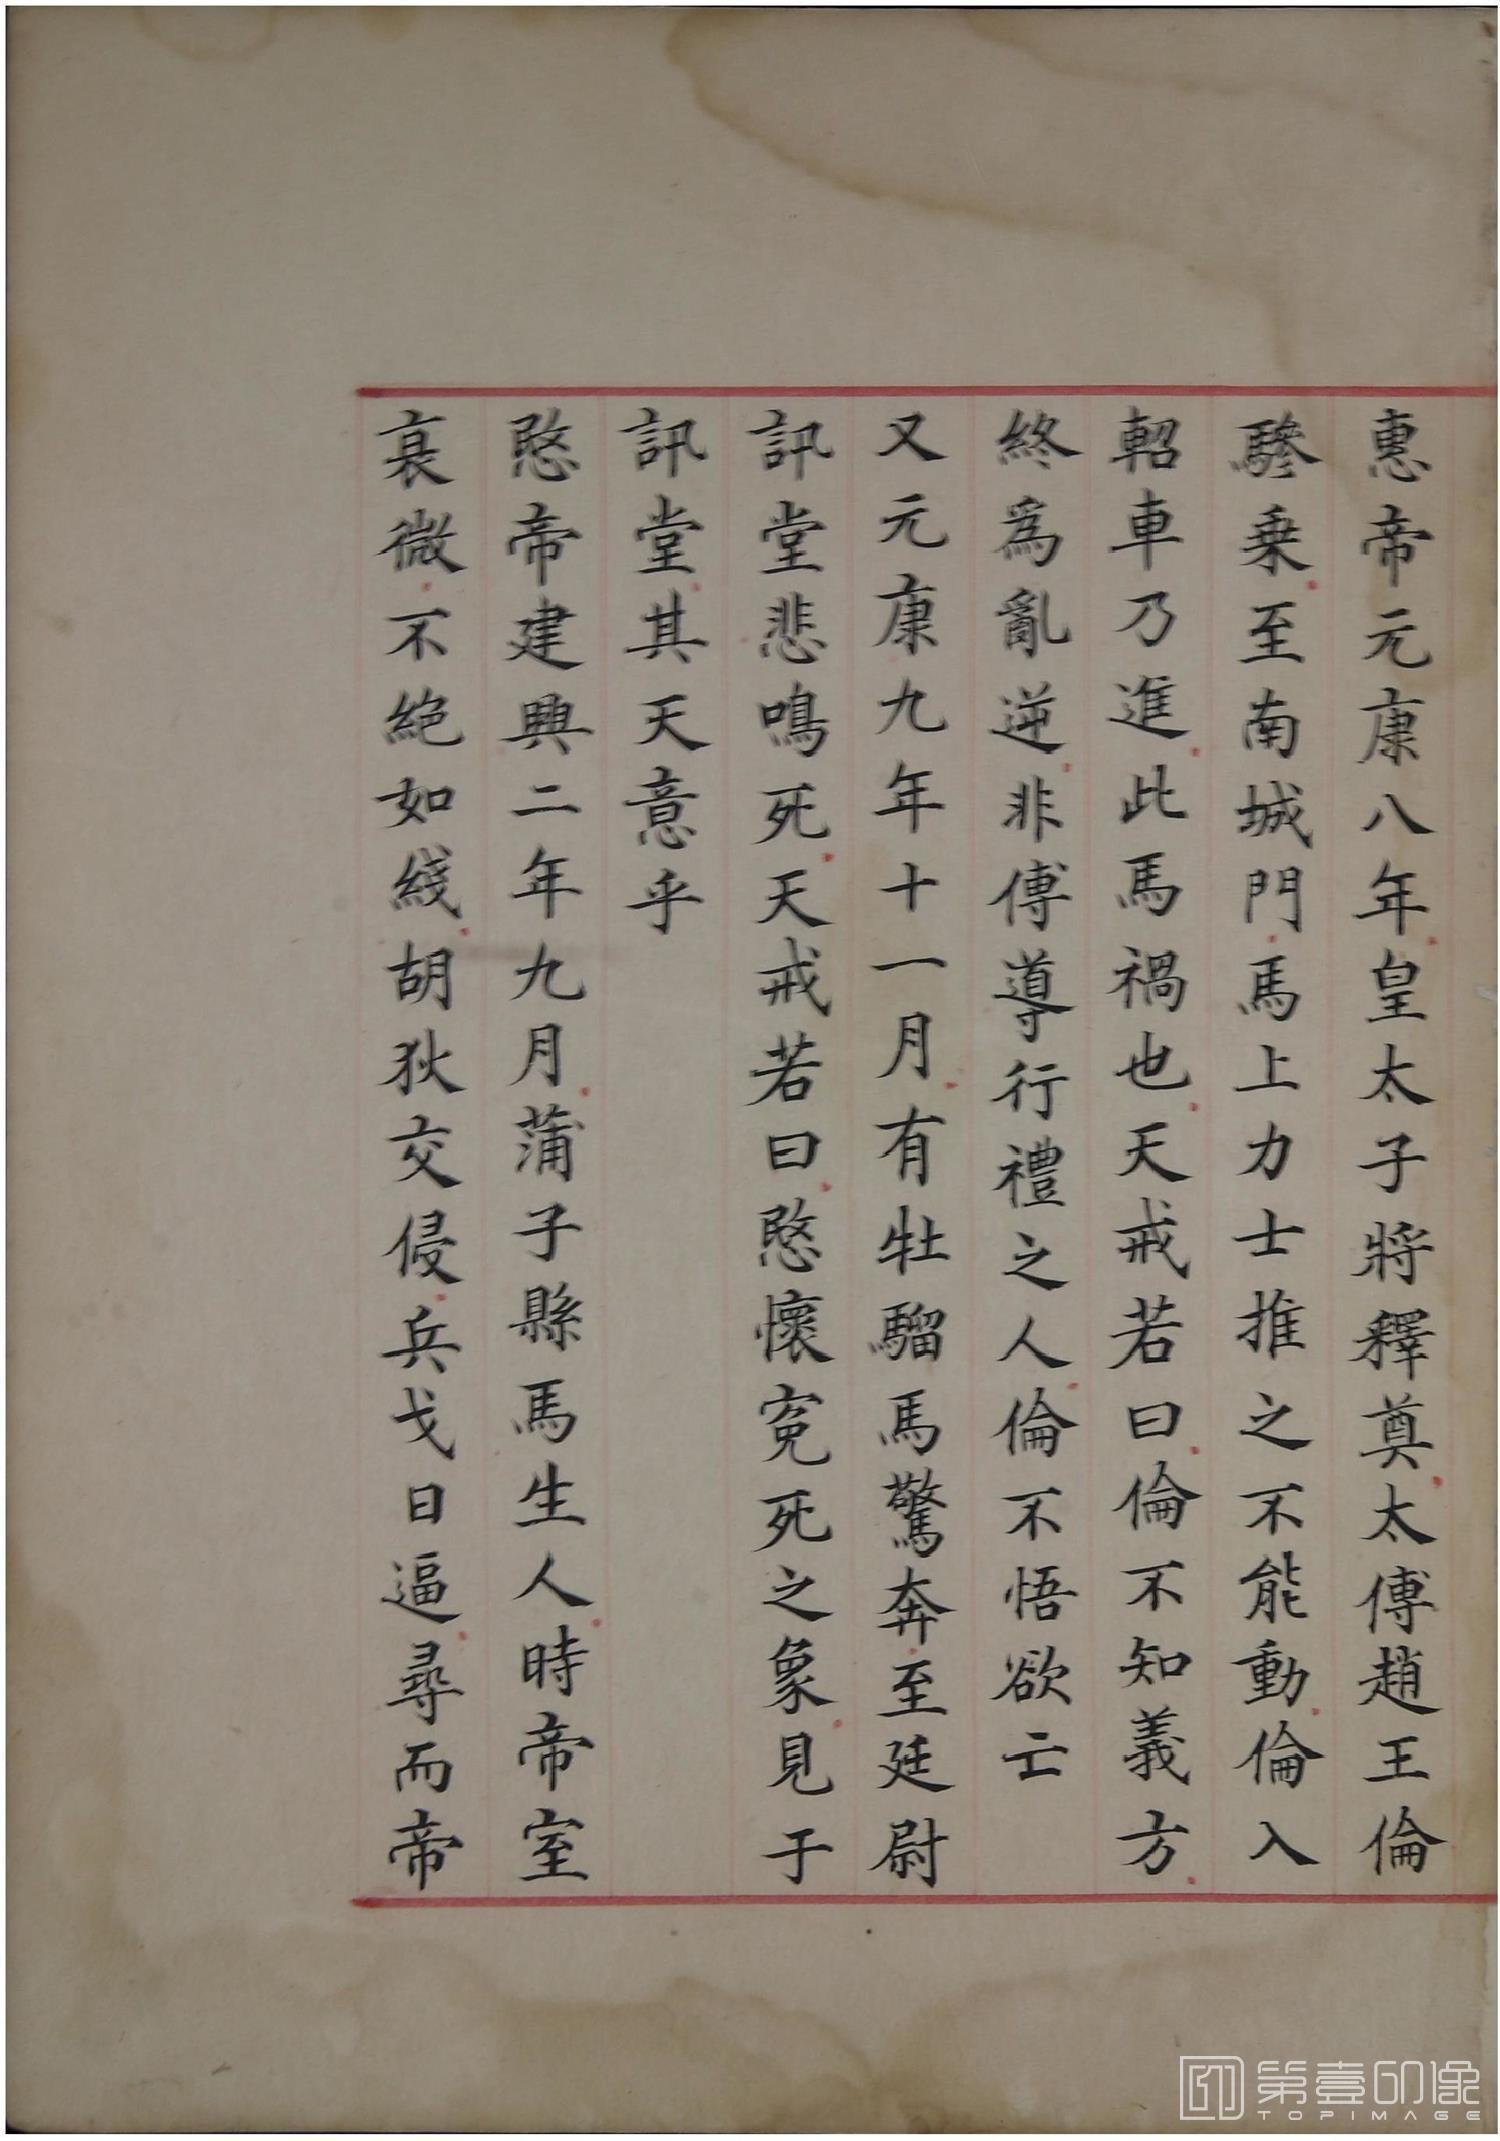 惠帝元康八年皇太子將釋奠太傅趙王倫
驂乗至南城門馬上力士推之不能動倫入
軺車乃進此馬禍也天戒若曰倫不知義方
終爲亂逆非傅導行禮之人倫不悟欲亡
又元康九年十一月有牡騮馬驚奔至廷尉
訊堂悲鳴死天戒若曰愍懷寃死之象見于
訊堂其天意乎
愍帝建興二年九月蒲子縣馬生人時帝室
衰微不絕如綫胡狄交侵兵戈日逼尋而帝
第壹印像
TOPIMAGE